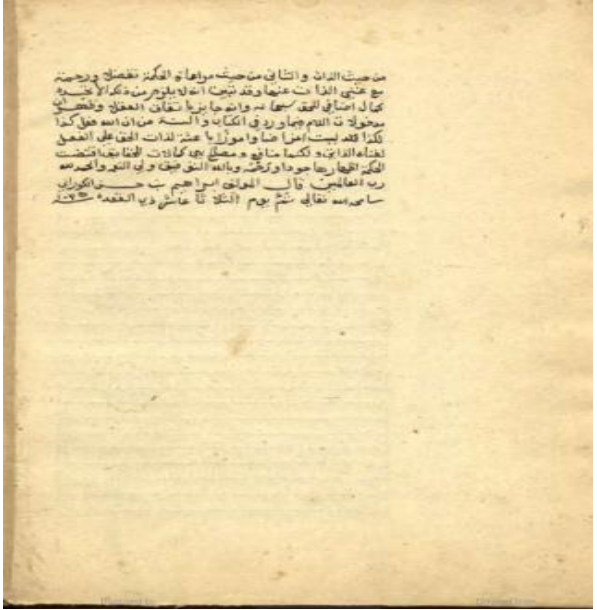 من حيث الذات والثاني من حيث مراعاة الحكمة تفضلا ورحمة
مع غنى الذات عنها وقد تبين انه لا يلزم من ذلك الا
كمال اضافي للحق سبحانه وانه جائز باتفاق العقلا وظهر ان
مدخولات اللام فيما ورد في الكتاب والسنة من ان الله فعل كذا
لكذا فقد ليست اغراضا وامورا باعثة لذات الحق على الفعل
لغناه الذاتي ولكنها منافع ومصالح هي كمالات الحقايق اقتضت
الحكمة اظهارها جودا ورحمة وبالله التوفيق ولي النور والحمد لله
رب العالمين قال المولف ابراهيم بن حسن الكوراني
سامحه الله تعالى تم يوم الثلاثا عاشر ذي القعدة